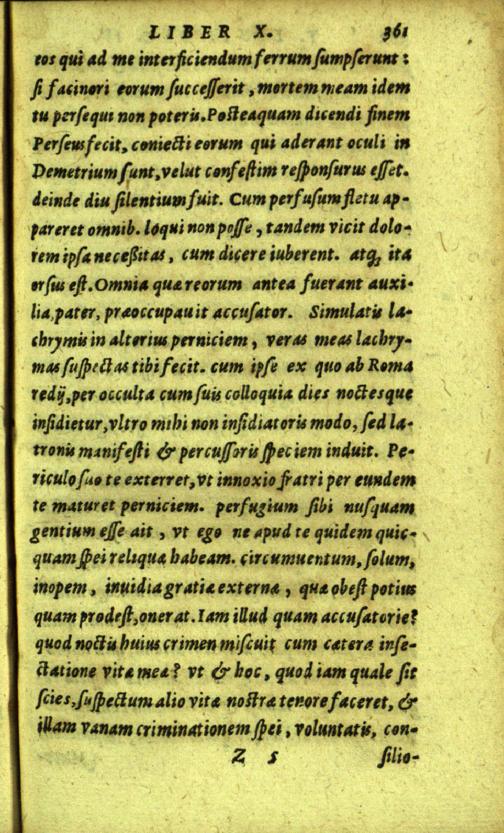 LIBER X. 361
eos qui ad me interficiendum ferrum sumpserunt:
si facinori eorum successerit, mortem meam idem
tu persequi non poteris. Posteaquam dicendi finem
Perseus fecit, coniecti eorum qui aderant oculi in
Demetrium sunt, velut confestim responsurus esset.
deinde diu silentium fuit. Cum perfusum fletu ap-
pareret omnib. loqui non posse, tandem vicit dolo-
rem ipsa necessitas, cum dicere iuberent. atq; ita
orsus est. Omnia quæ reorum antea fuerant auxi-
lia, pater, præoccupauit accusator. Simulatis la-
chrymis in alterius perniciem, veras meas lachry-
mas suspectas tibi fecit. cum ipse ex quo ab Roma
redij, per occulta cum suis colloquia dies noctesque
insidietur, vltro mihi non insidiatoris modo, sed la-
tronis manifesti & percussoris speciem induit. Pe-
riculo suo te exterret, vt innoxio fratri per eundem
te maturet perniciem. perfugium sibi nusquam
gentium esse ait, vt ego ne apud te quidem quic-
quam spei reliquæ habeam. circumuentum, solum,
inopem, inuidia gratiæ externæ, quæ obest potius
quam prodest, onerat. Iam illud quam accusatorie?
quod noctis huius crimen miscuit cum cætera inse-
ctatione vitæ meæ? vt & hoc, quod iam quale sit
scies, suspectum alio vitæ nostræ tenore faceret, &
illam vanam criminationem spei, voluntatis, con-
Z 5 silio-